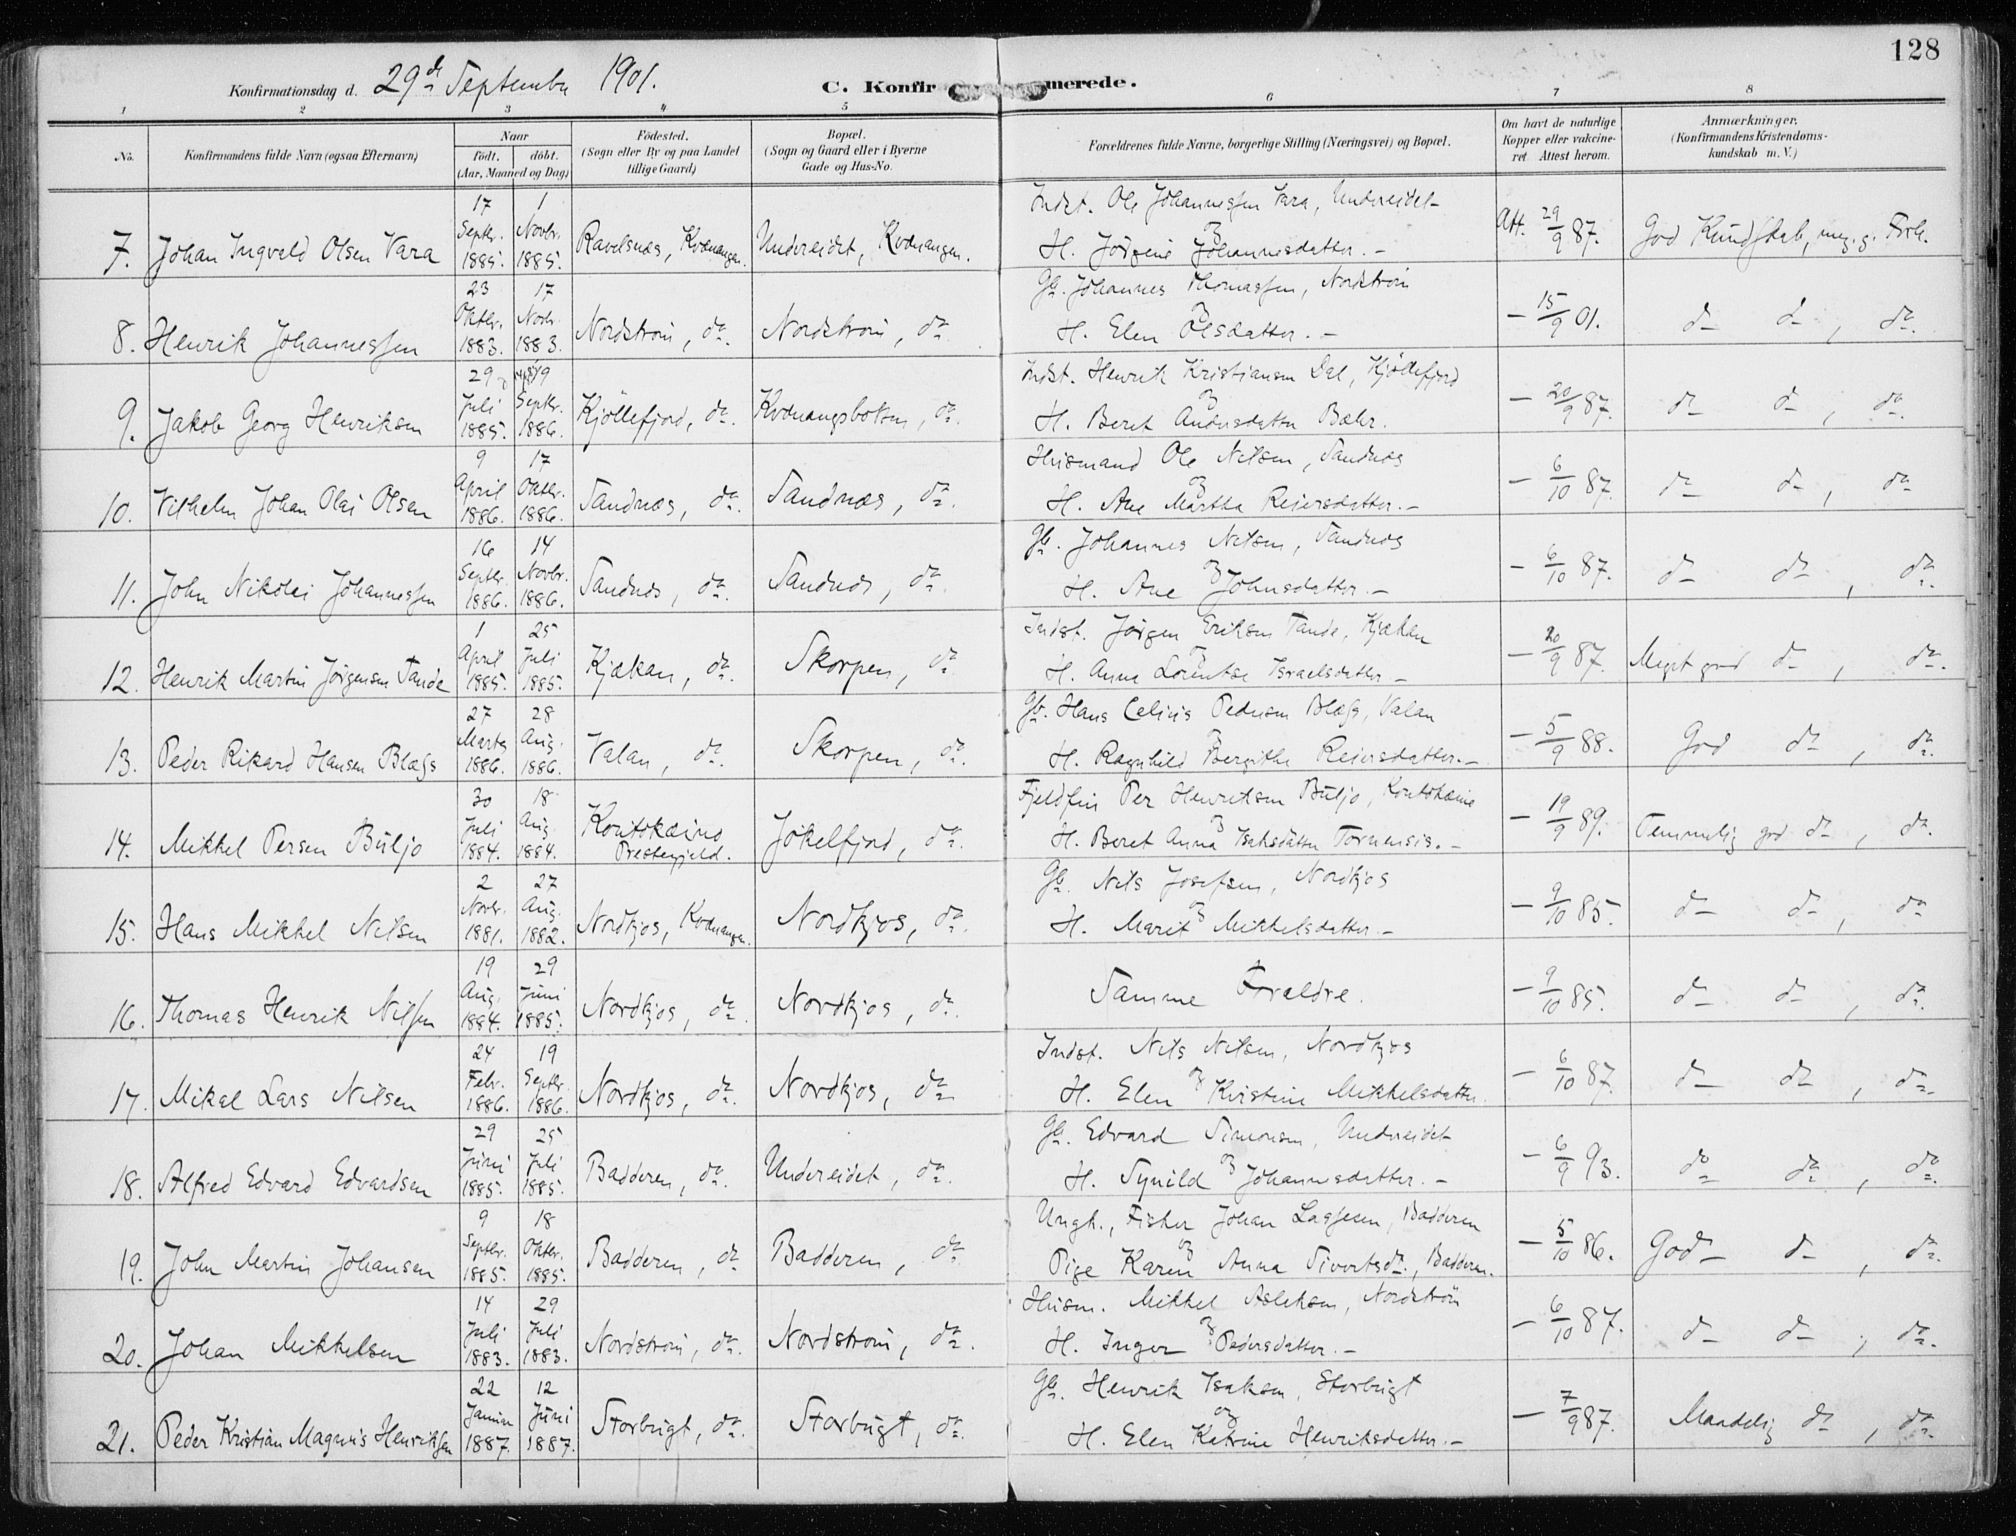 128
Konfirmationsdag d. 29de September 1901.
C. Konfirmerede.
1 2 3 4 5 6 7 8
No. Konfirmandens fulde Navn (ogsaa Efternavn) Naar født. døbt. (Aar, Maaned og Dag) Fødested. (Sogn eller By og paa Landet tillige Gaard) Bopæl. (Sogn og Gaard eller i Byerne Gade og Hus-No. Forældrenes fulde Navne, borgerlige Stilling (Næringsvei) og Bopæl. Om havt de naturlige Kopper eller vakcineret. Attest herom. Anmærkninger. (Konfirmandens Kristendomskundskab m. V.)
7. Johan Ingvald Olsen Vara 17 Septbr. 1885. 1 Novbr. 1885. Ravelsnæs, Kvænangen. Undereidet, Kvænangen. Indst. Ole Johannessen Vara, Undereidet og H. Jørgine Johannesdatter. — Att. 29/9 87. God Kundskab, meg. g. Forh.
8. Henrik Johannessen 23 Oktbr. 1883. 17 Novbr. 1883. Nordstrøm, do. Nordstrøm, do. Gb. Johannes Thomassen, Nordstrøm og H. Elen Olsdatter. — — 15/9 01. do do, do.
9. Jakob Georg Henriksen 29 Juli 1885. 19 Septbr. 1886. Kjøllefjord, do. Kvænangsbotten, do. Indst. Henrik Kristiansen Dal, Kjøllefjord og H. Beret Andersdatter Bæhr. — 20/9 87. do do, do.
10. Vilhelm Johan Olai Olsen 9 April 1886. 17 Oktbr. 1886. Sandnæs, do. Sandnæs, do. Husmand Ole Nilsen, Sandnæs og H. Ane Martha Reiersdatter. — — 6/10 87. do do, do
11. John Nikolai Johannessen 16 Septbr. 1886. 14 Novbr. 1886. Sandnæs, do. Sandnæs, do. Gb. Johannes Nilsen, Sandnæs og H. Ane Johnsdatter. — — 6/10 87. do do, do.
12. Henrik Martin Jørgensen Tande 1 April 1885. 25 Juli 1885. Kjækan, do. Skorpen, do. Indst. Jørgen Eriksen Tande, Kjækan og H. Anna Lorentse Israelsdatter — — 20/9 87. Meget god do, do.
13. Peder Rikard Hansen Blæss 27 Marts 1886. 28 Aug. 1886. Valan, do. Skorpen, do. Gb. Hans Celius Pedersen Blæss, Valan og H. Ragnhild Bergithe Reiersdatter. — — 5/9 88. God do, do.
14. Mikkel Persen Buljo 30 Juli 1884. 18 Aug. 1884. Koutokæino Prestegjeld. Jøkelfjord, do. Fjeldfin Per Henriksen Buljo, Koutokæino og H. Beret Anna Isaksdatter Tornensis. — — 19/9 89. Temmelig god do, do.
15. Hans Mikkel Nilsen 2 Novbr. 1881. 27 Aug. 1882. Nordkjos, Kvænangen. Nordkjos, do. Gb. Nils Josefsen, Nordkjos og H. Marit Mikkelsdatter. — — 9/10 85. do do, do
16. Thomas Henrik Nilsen 19 Aug. 1884. 29 Juni 1885. Nordkjos, do. Nordkjos, do. Samme Forældre. — 9/10 85. do do, do.
17. Mikal Lars Nilsen 24 Febr. 1886. 19 Septbr. 1886. Nordkjos, do. Nordkjos, do Indst. Nils Nilsen, Nordkjos og H. Elen Kristine Mikkelsdatter. — 6/10 87. do do, do.
18. Alfred Edvard Edvardsen 29 Juni 1885. 25 Juli 1885. Badderen, do. Undereidet, do. Gb. Edvard Simonsen, Undereidet og H. Synild Johannesdatter. — — 6/9 93. do do, do.
19. John Martin Johansen 9 Septbr. 1885. 18 Oktbr. 1885. Badderen, do. Badderen, do. Ungk., Fisker Johan Lassesen, Badderen og Pige Karen Anna Sivertsd., Badderen. — 5/10 86. God do, do.
20. Johan Mikkelsen 14 Juli 1883. 29 Juli 1883. Nordstrøm, do. Nordstrøm, do. Husm. Mikkel Aslaksen, Nordstrøm og H. Inger Pedersdatter. — — 6/10 87. do do, do.
21. Peder Kristian Magnus Henriksen 22 Januar 1887. 12 Juni 1887. Storbugt, do. Storbugt, do. Gb. Henrik Isaksen, Storbugt og H. Elen Katrine Henriksdatter. — — 7/9 87. Maadelig do, do.